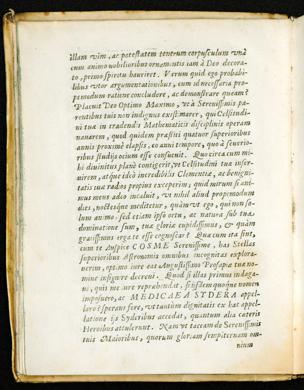 illam vim, ac potestatem tenerum corpusculum vnà
cum animo nobilioribus ornamentis iam à Deo decora-
to, primo spiritu hauriret. Verùm quid ego probabi-
libus vtor argumentationibus, cum id necessaria pro-
pemodum ratione concludere, ac demonstrare queam?
Placuit Deo Optimo Maximo, vt à Serenissimis pa-
rentibus tuis non indignus existimarer, qui Celsitudi-
ni tuæ in tradendis Mathematicis disciplinis operam
nauarem, quod quidem præstiti quatuor superioribus
annis proximè elapsis, eo anni tempore, quo à seuerio-
ribus studijs ocium esse consueuit. Quo circa cum mi-
hi diuinitùs planè contigerit, vt Celsitudini tuæ inser-
uirem, atque ideò incredibilis Clementiæ, ac benigni-
tatis tuæ radios propius exceperim; quid mirum si ani-
mus meus adeò incaluit, vt nihil aliud propemodum
dies, noctesque meditetur, quàm vt ego, qui non so-
lum animo, sed etiam ipso ortu, ac natura sub tua
dominatione sum, tuæ gloriæ cupidissimus, & quàm
gratissimus erga te esse cognoscar? Quæ cum ita sint,
cum te Auspice COSME Serenissime, has Stellas
superioribus Astronomis omnibus incognitas explora-
uerim, optimo iure eas Augustissimo Prosapiæ tuæ no-
mine insignire decreui. Quòd si illas primus indaga-
ui, quis me iure reprehendat, si ijsdem quoque nomen
imposuero, ac MEDICAEA SYDERA appel-
laro? sperans fore, vt tantùm dignitatis ex hac appel-
latione ijs Syderibus accedat, quantum alia cæteris
Heroibus attulerunt. Nam vt taceam de Serenissimis
tuis Maioribus, quorum gloriam sempiternam om-
nium